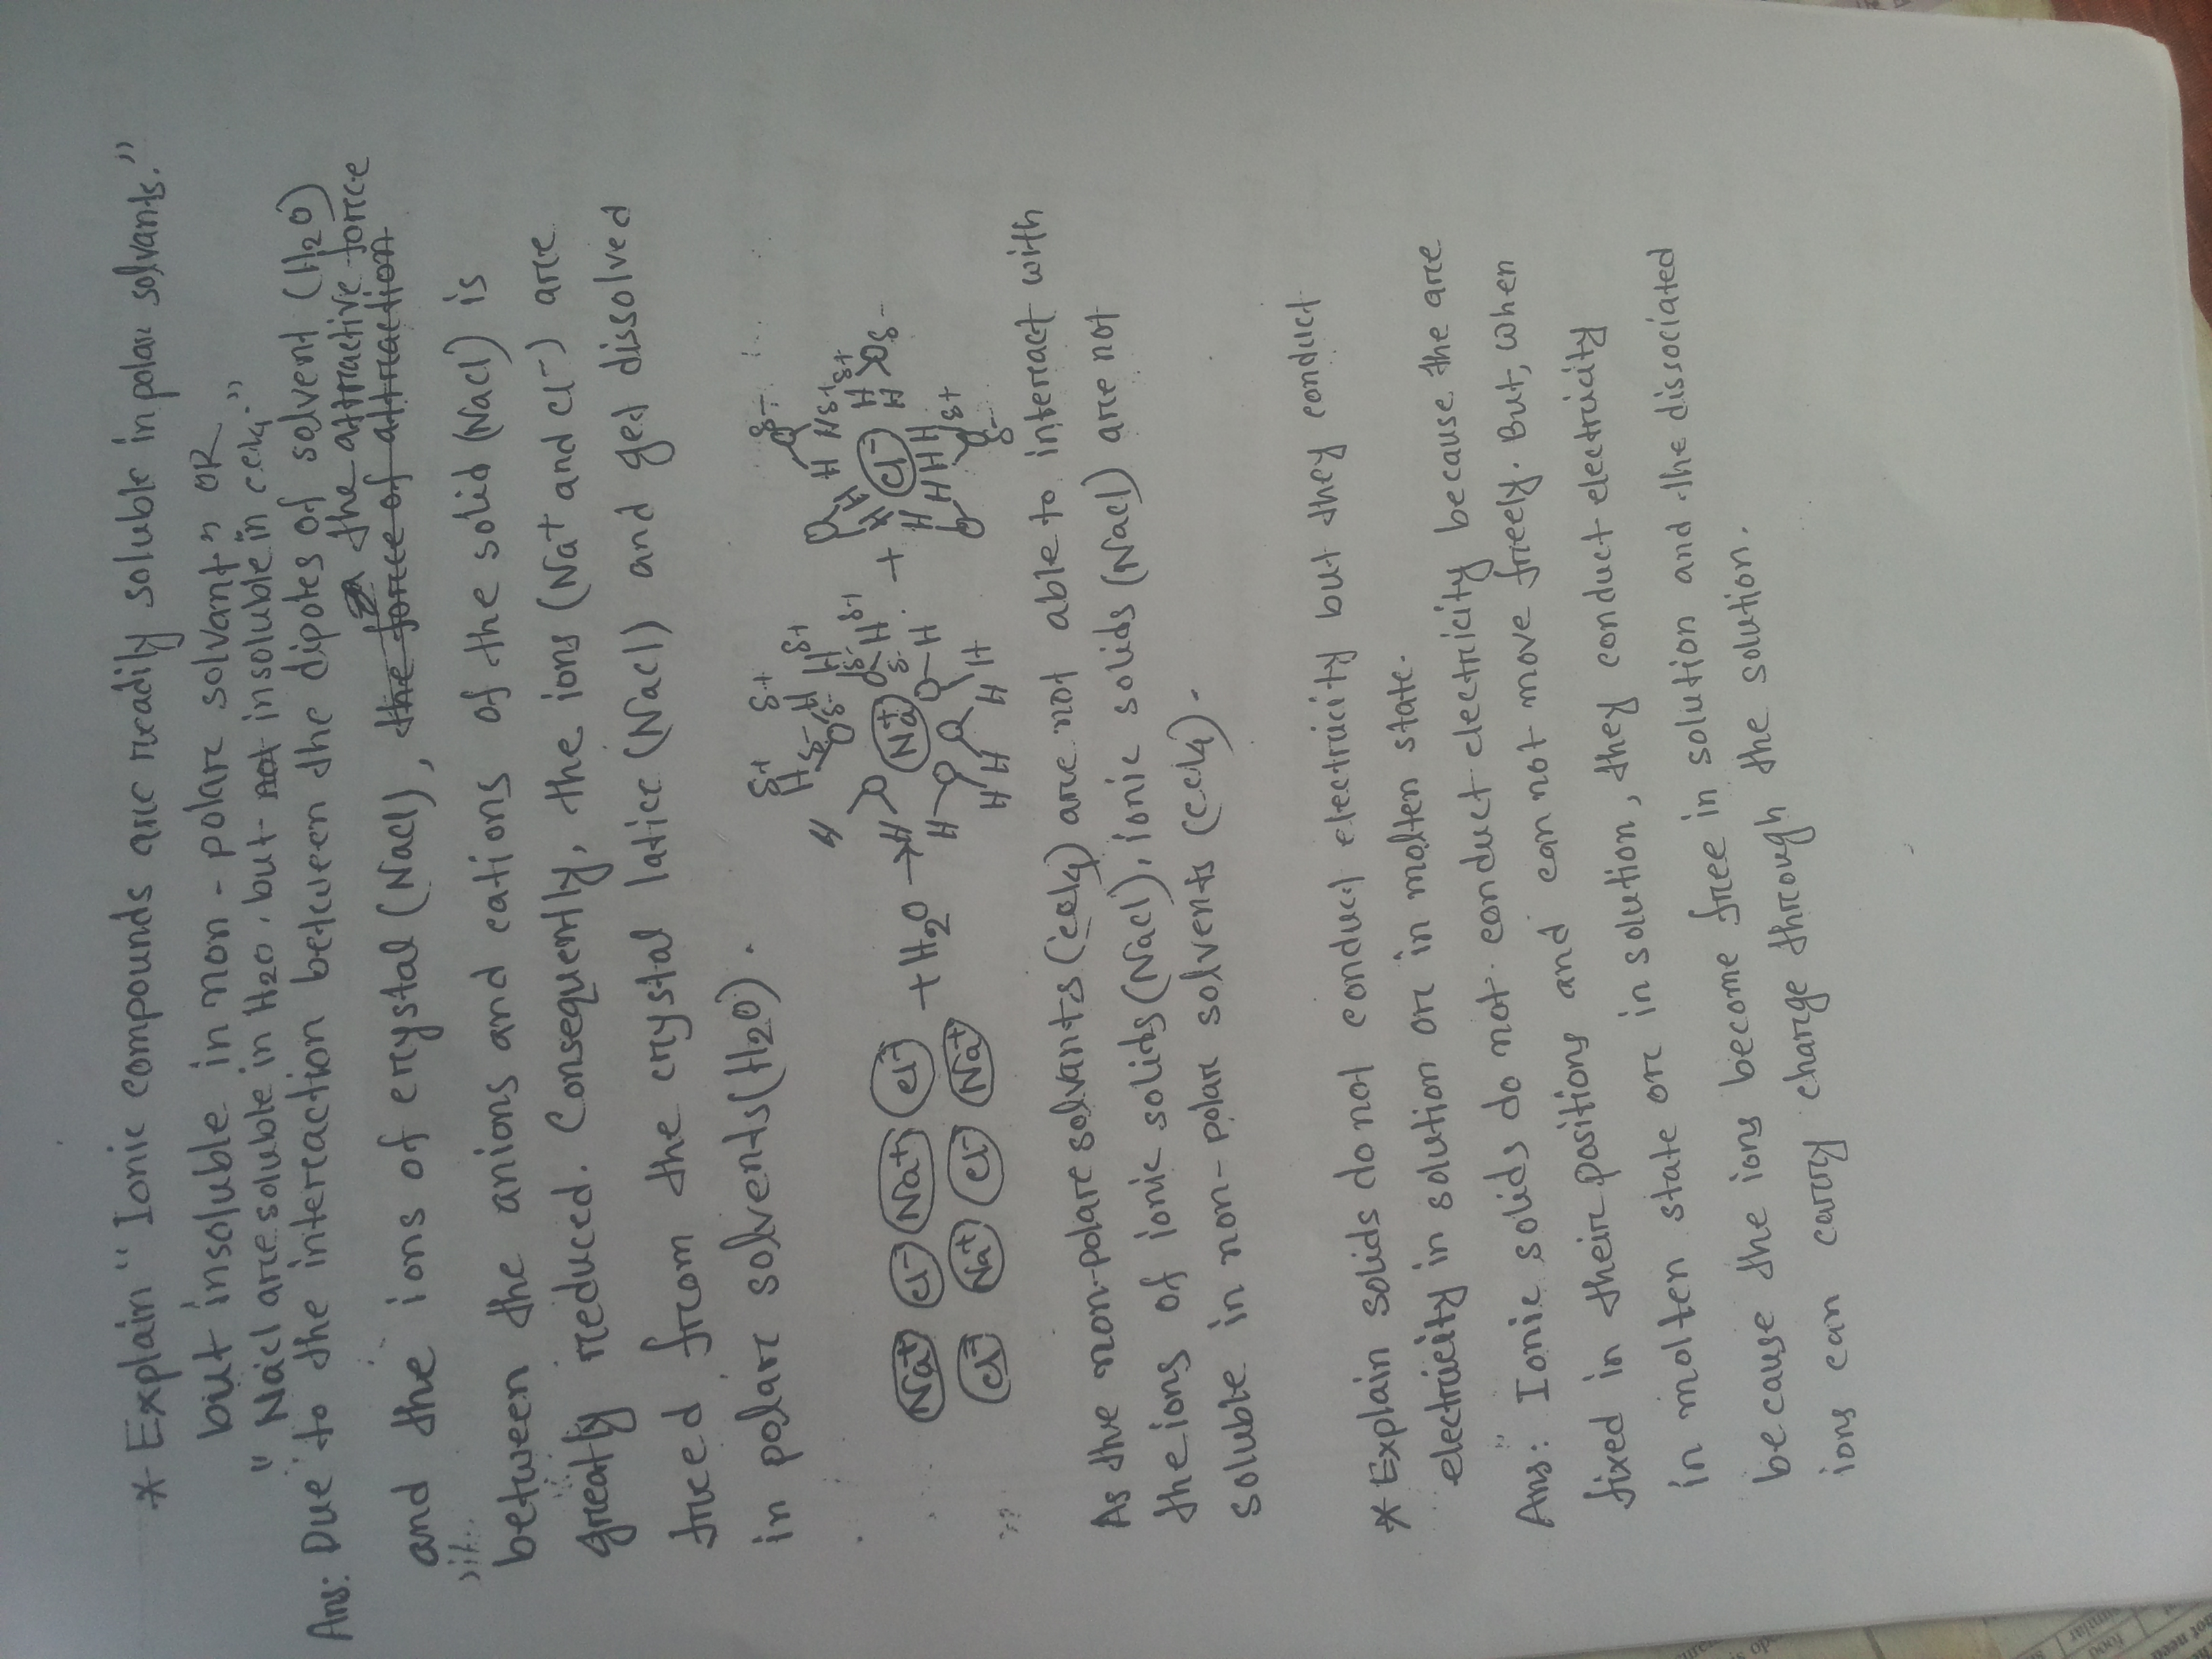 * Explain "Ionic compounds are readily soluble in polar solvants."
but insoluble in non-polar solvant" OR
"Nacl are soluble in H2O, but insoluble in CCl4."
Ans: Due to the intereaction between the dipoles of solvent (H2O)
the attractive force
and the ions of crystal (Nacl), the force of attraction
between the anions and cations of the solid (Nacl) is
greatly reduced. Consequently, the ions (Na+ and Cl-) are
freed from the crystal latice (Nacl) and get dissolved
in polar solvents (H2O).
Na+ Cl- Na+ Cl- + H2O → Na+ + Cl-
Cl- Na+ Cl- Na+
As the non-polar solvants (CCl4) are not able to intereact with
the ions of ionic solids (Nacl), ionic solids (Nacl) are not
soluble in non-polar solvents (CCl4).
* Explain solids do not conduct electricity but they conduct
electricity in solution or in molten state.
Ans: Ionic solids do not conduct electricity because the are
fixed in their positions and can not move freely. But, when
in molten state or in solution, they conduct electricity
because the ions become free in solution and the dissociated
ions can carry charge through the solution.